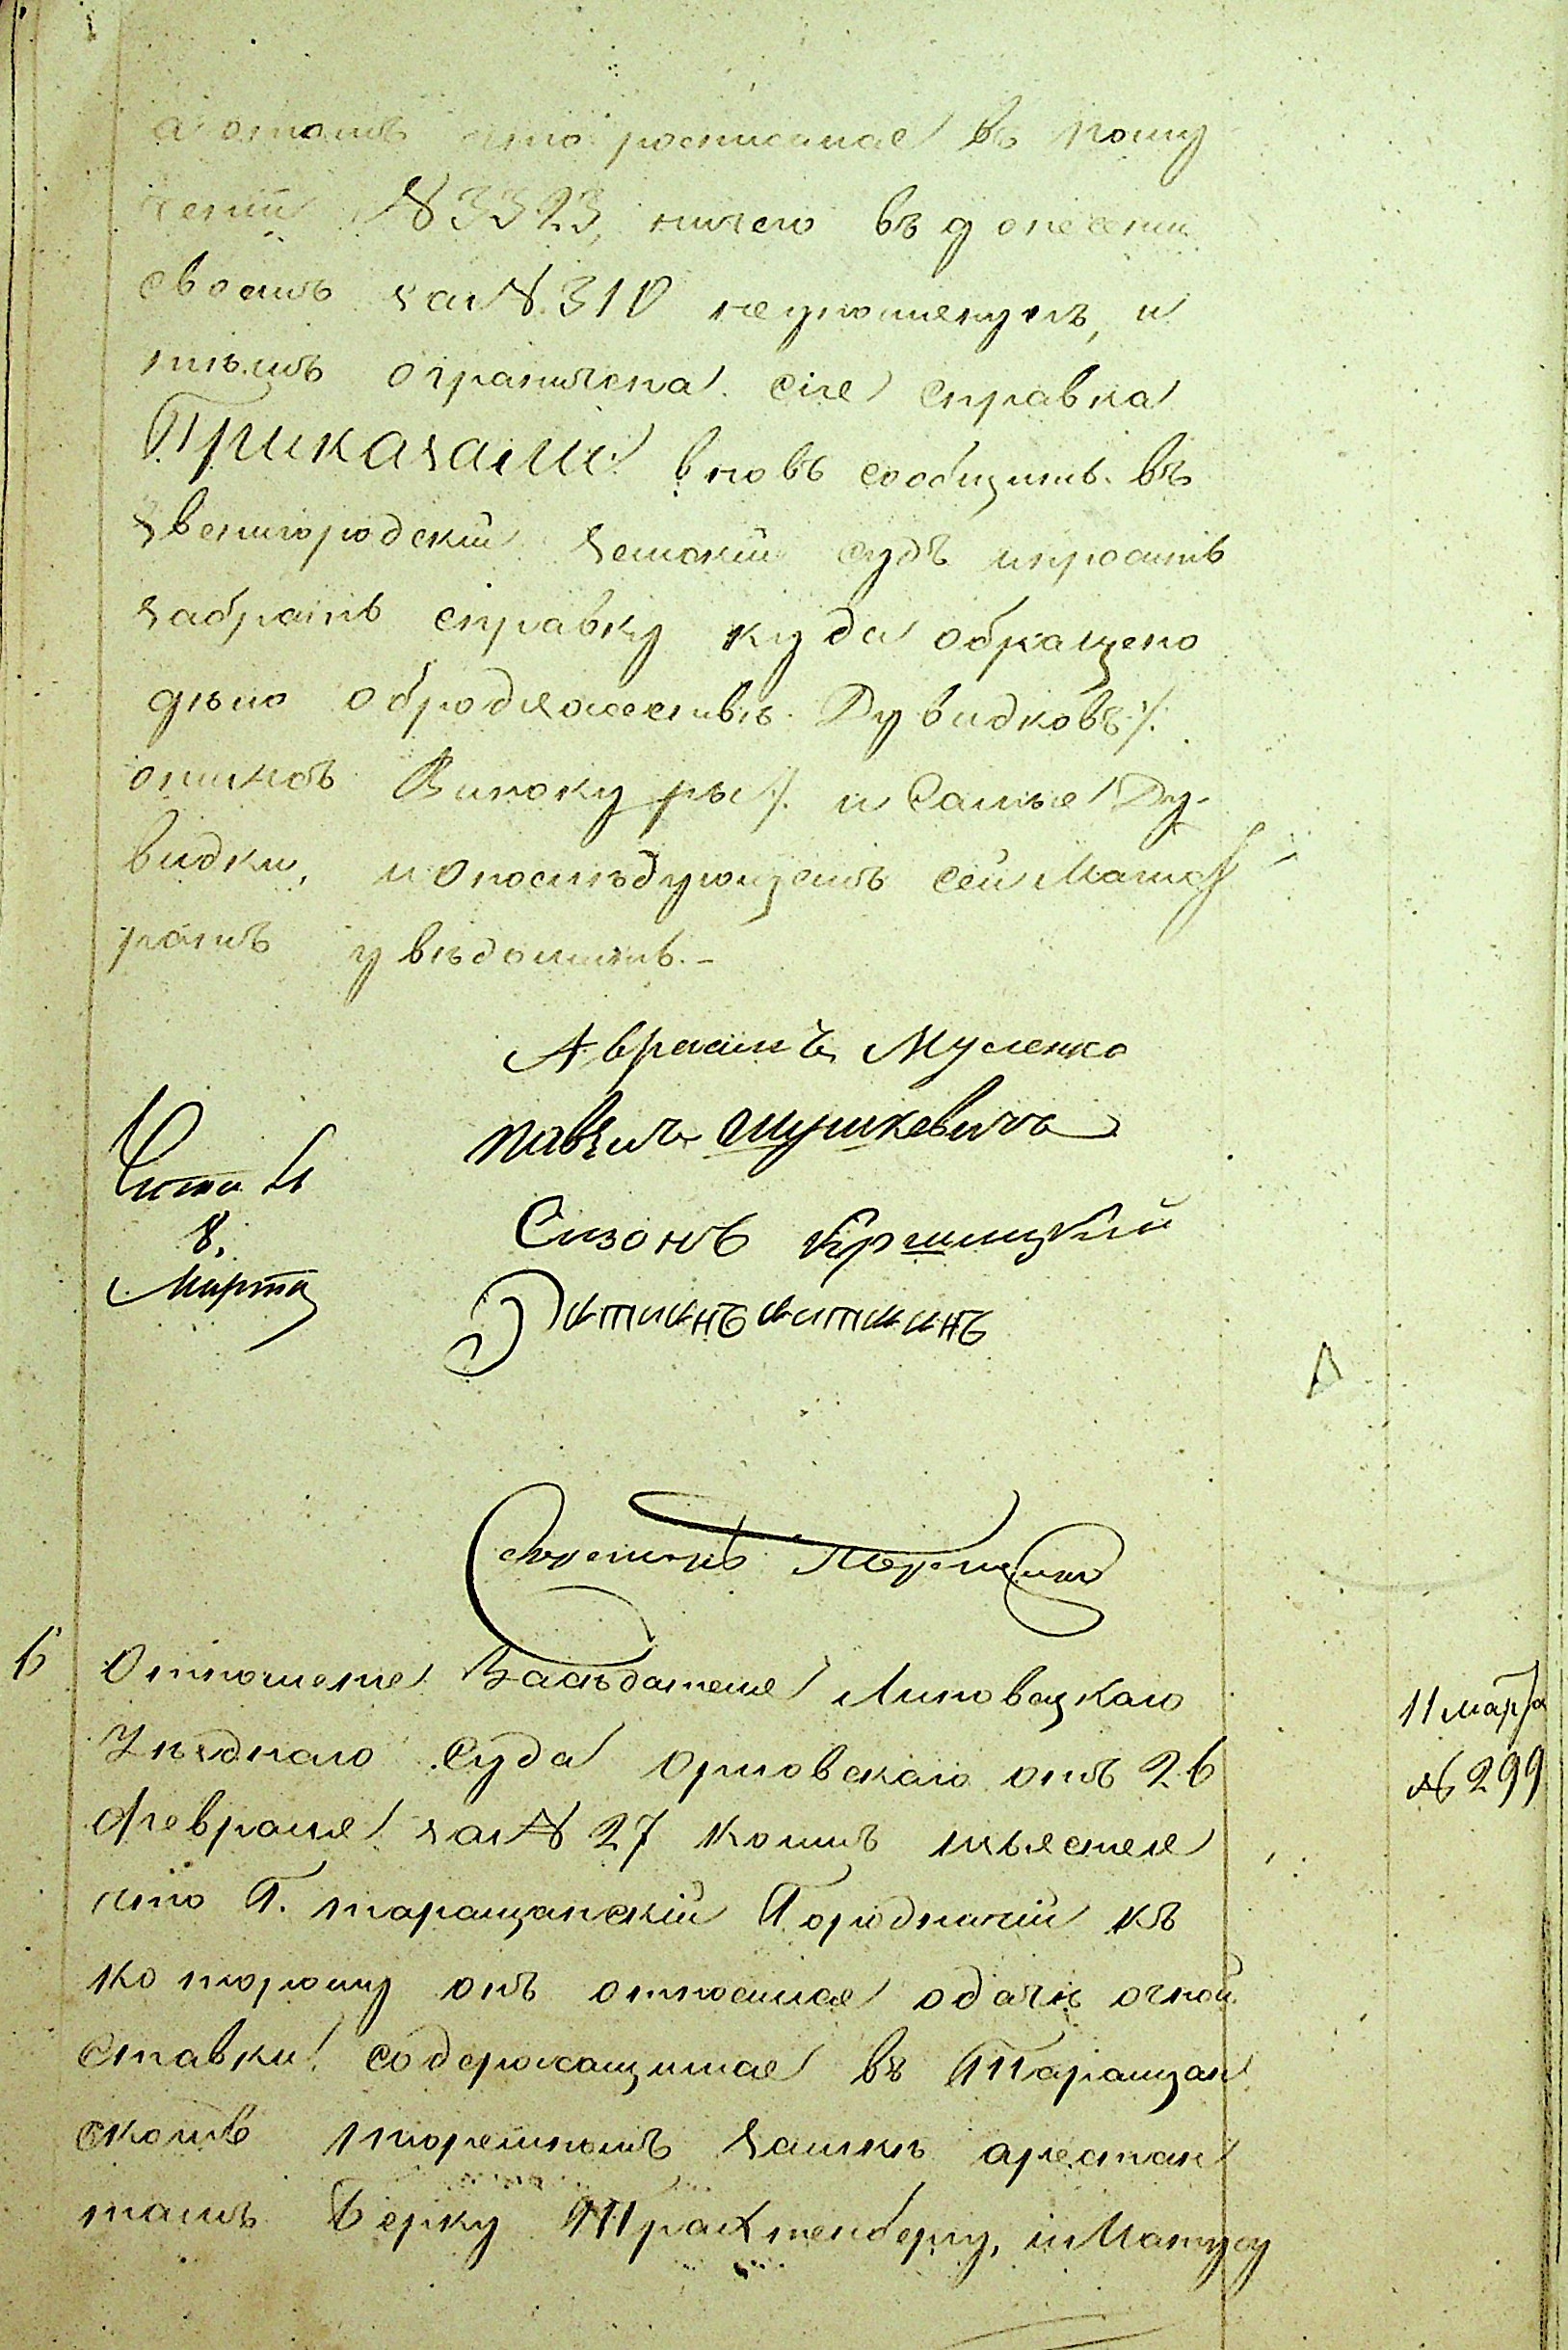 а отомъ что росписался въ полу
чении №3323, ничего въ донесении
своемъ за №310 неупомянулъ, и
тѣмъ ограничена сія справка
Приказали вновь сообщить въ
Звенигородскій Земскій судъ ипросить
забрать справку куда обращено
дѣло обродяжествѣ Дувидковъ /:
онижъ Винокуры :/ и Самые Ду-
видки, и опослѣдующемъ сей Магист
ратъ увѣдомить.-
Авраамъ Мусленко
Сизонъ
Читал
8.
Марта
Эйтлинъ
Секретарь
6 Отношение Засѣдателя Липовецкаго
Уѣзднаго Суда Орловскаго отъ 26
Февраля за № 27 коимъ изъясняя
что Г. таращанскій Городничій къ
которому онъ относился одачѣ очной
ставки содержащимся въ Таращан
скомъ тюремномъ замкѣ арестан
тамъ Берку Трахтенбергу, и Матусу
11 марта
№ 299